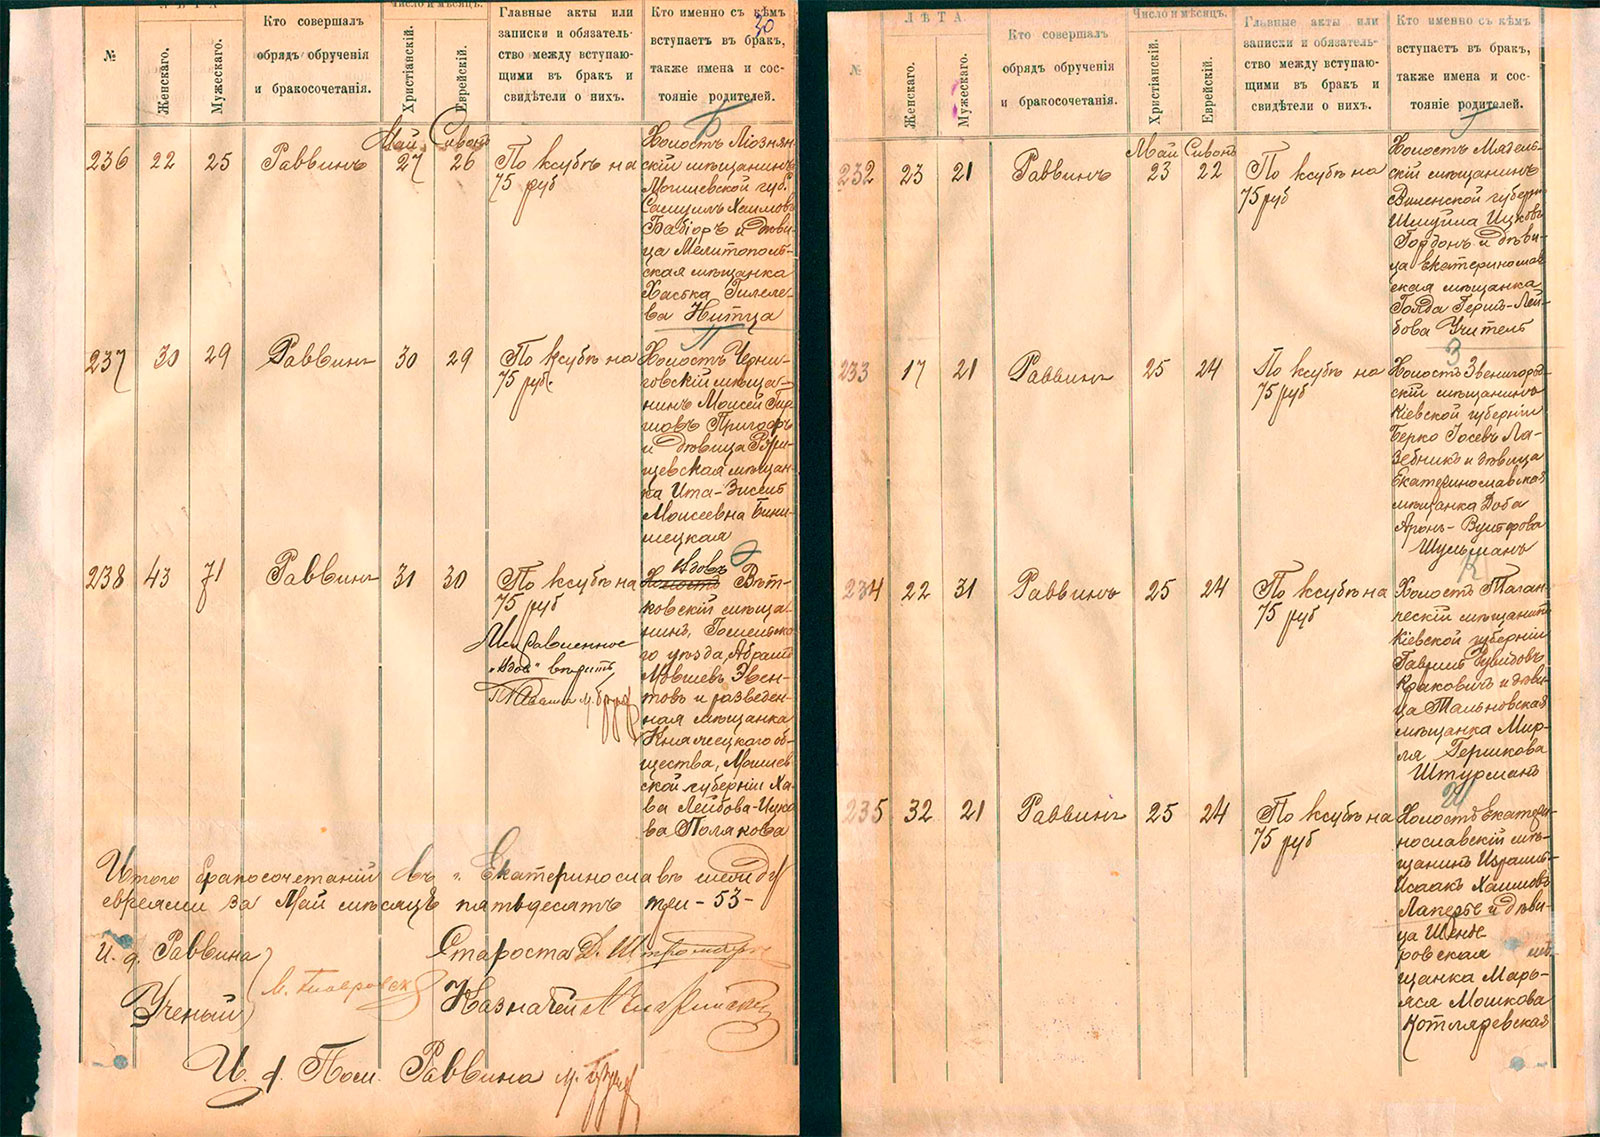 30
№
ЛѢТА
Женскаго.
Мужескаго.
Кто совершалъ
обрядъ обрученія
и бракосочетанія.
Число и мѣсяцъ.
Христіанскій.
Еврейскій.
Главные акты или
записки и обязатель-
ство между вступаю-
щими въ бракъ и
свидѣтели о нихъ.
Кто именно съ кѣмъ
вступаетъ въ бракъ,
также имена и сос-
тояніе родителей.
Б
Май Сивонъ
236 22 25 Раввинъ 27 26 По ксубѣ на
75 руб
Холостъ Ліознян-
скій мѣщанинъ
Могилевской губ.
Самуилъ Хаимовъ
Бабіоръ и дѣви-
ца Мелитополь-
ская мѣщанка
Хаська Гилеле-
ва Нитца
П
237 30 29 Раввинъ 30 29 По ксубѣ на
75 руб.
Холостъ Черни-
говскій мѣща-
нинъ Моисей Гир-
шовъ Пригоръ
и дѣвица
мѣщан-
ка Ита-Зисель
Моисеевна
238 43 71 Раввинъ 31 30 По ксубѣ на
75 руб
Исправленное
„вдов“ вѣрить
вдовъ
Холостъ Вѣт-
ковскій мѣща-
нинъ, Гомельско-
го уѣзда, Абрамъ
Мовшевъ Эвен-
товъ и разведен-
ная мѣщанка
Княжецкаго об-
щества, Могилев
ской губерніи Ха-
ва Лейбова-Ицко
ва Полякова
Итого бракосочетаній въ г. Екатеринославѣ между
евреями за Май мѣсяцъ пятьдесятъ три - 53 -
И. д. Раввина
Ученый
Староста Д.
Казначей
И. д. Пом. Раввина
№
ЛѢТА.
Женскаго.
Мужескаго.
Кто совершалъ
обрядъ обрученія
и бракосочетанія.
Число и мѣсяцъ.
Христіанскій.
Еврейскій.
Главные акты или
записки и обязатель-
ство между вступаю-
щими въ бракъ и
свидѣтели о нихъ.
Кто именно съ кѣмъ
вступаетъ въ бракъ,
также имена и сос-
тояніе родителей.
Г
Май Сивонъ
232 23 21 Раввинъ 23 22 По ксубѣ на
75 руб
Холостъ Мядель-
скій мѣщанинъ
Виленской губерн
Шмуйла Ицковъ
Гордонъ и дѣви-
ца Екатеринослав
ская мѣщанка
Голда Герш-Лей-
бова Учитель
З
233 17 21 Раввинъ 25 24 По ксубѣ на
75 руб
Холостъ Звенигород-
скій мѣщанинъ
Кіевской губерніи
Берко Іосевъ Ла-
зебникъ и дѣвица
Екатеринославская
мѣщанка Доба
Аронъ-Вульфова
Шульманъ
К
234 22 31 Раввинъ 25 24 По ксубѣ на
75 руб
Холостъ Таган-
ческій мѣщанинъ
Кіевской губерніи
Гавріилъ Рувидовъ
Кракович и дѣви-
ца Тальновская
мѣщанка Мир-
ля Гершкова
Штурманъ
235 32 21 Раввинъ 25 24 По ксубѣ на
75 руб
Холостъ Екатери-
нославскій мѣ-
щанинъ Израиль-
Исаакъ Хаимовъ
и дѣви-
ца Шенде
ровская мѣ
щанка Марь-
яся Мошкова
Котляревская